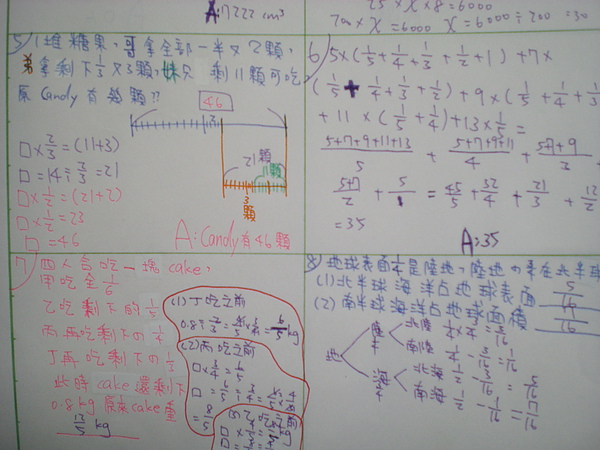 A:7222 cm³
25 × X × 8 = 6000
200 × X = 6000 X = 6000 ÷ 200 = 30
5) 1堆糖果,哥拿全部一半又2顆,
弟拿剩下⅓又3顆,妹只剩11顆可吃
原Candy有幾顆??
46
□×2/3=(11+3)
□=14÷2/3=21
□×1/2=(21+2)
□×1/2=23
□=46
21顆
11顆
3顆
A:Candy有46顆
6) 5×(1/5+1/4+1/3+1/2+1)+7×
(1/5+1/4+1/3+1/2)+9×(1/5+1/4+1/3
+11×(1/5+1/4)+13×1/5=
5+7+9+11+13/5 + 5+7+9+11/4 + 5+7+9/3 +
5+7/2 + 5/1 = 45/5 + 32/4 + 21/3 + 12/2
=35
A:35
7) 四人合吃一塊cake,
甲吃全1/6
乙吃剩下的1/5
丙再吃剩下の1/4
丁再吃剩下の1/3
此時cake還剩下
0.8kg原來cake重
kg
(1)丁吃之前
0.8÷2/3= =6/5kg
(2)丙吃之前
□×3/4=6/5
8) 地球表面1/4是陸地,陸地の
(1)北半球海洋占地球表面 5/16
(2)南半球海洋占地球面積
地
陸
北陸 1/4×3/4=3/16
南陸 1/4-3/16=1/16
海
北海 1/2-3/16=5/16
南海 1/2-1/16=